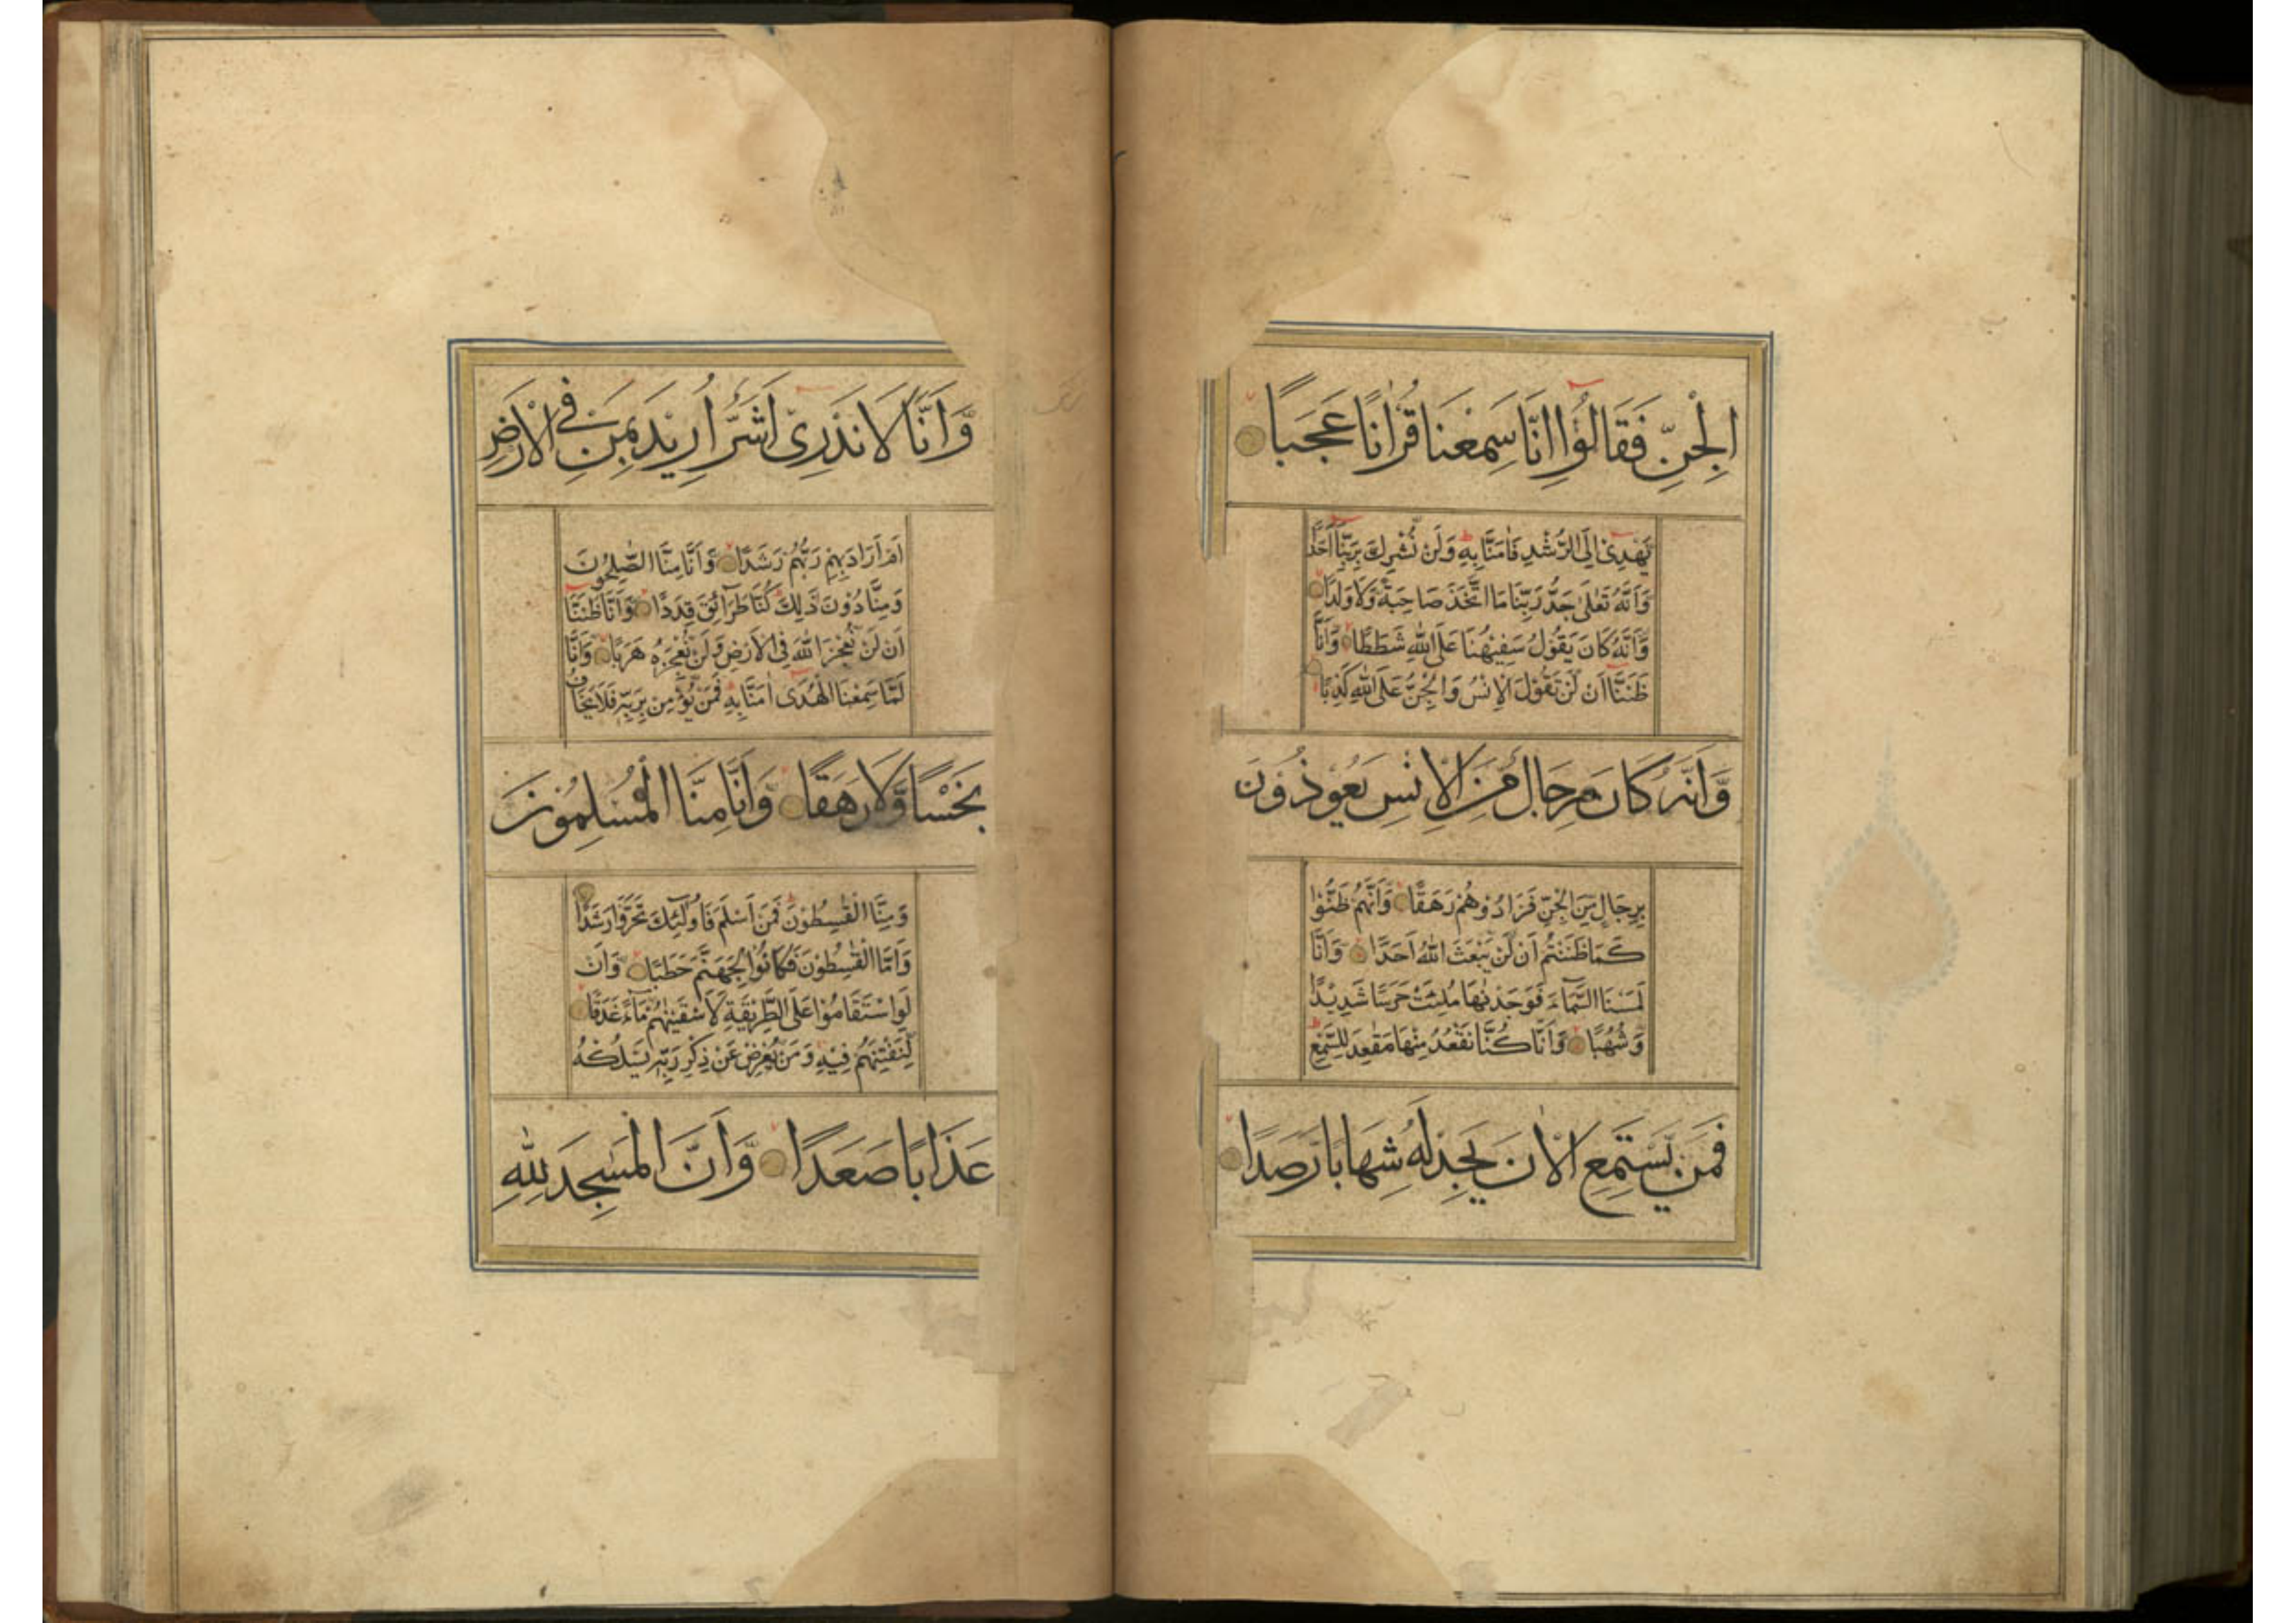 الْجِنِّ فَقَالُوْا اِنَّا سَمِعْنَا قُرْاٰنًا عَجَبًا
يَهْدِىْ اِلَى الرُّشْدِ فَاٰمَنَّا بِهٖ وَلَنْ نُّشْرِكَ بِرَبِّنَا اَحَدًا
وَاَنَّهٗ تَعٰلٰى جَدُّ رَبِّنَا مَا اتَّخَذَ صَاحِبَةً وَّلَا وَلَدًا
وَّاَنَّهٗ كَانَ يَقُوْلُ سَفِيْهُنَا عَلَى اللّٰهِ شَطَطًا وَّاَنَّا
ظَنَنَّا اَنْ لَّنْ تَقُوْلَ الْاِنْسُ وَالْجِنُّ عَلَى اللّٰهِ كَذِبًا
وَّاَنَّهٗ كَانَ رِجَالٌ مِّنَ الْاِنْسِ يَعُوْذُوْنَ
بِرِجَالٍ مِّنَ الْجِنِّ فَزَادُوْهُمْ رَهَقًا وَّاَنَّهُمْ ظَنُّوْا
كَمَا ظَنَنْتُمْ اَنْ لَّنْ يَّبْعَثَ اللّٰهُ اَحَدًا وَّاَنَّا
لَمَسْنَا السَّمَآءَ فَوَجَدْنٰهَا مُلِئَتْ حَرَسًا شَدِيْدًا
وَّشُهُبًا وَّاَنَّا كُنَّا نَقْعُدُ مِنْهَا مَقٰعِدَ لِلسَّمْعِ
فَمَنْ يَّسْتَمِعِ الْاٰنَ يَجِدْ لَهٗ شِهَابًا رَّصَدًا
وَّاَنَّا لَا نَدْرِىْ اَشَرٌّ اُرِيْدَ بِمَنْ فِى الْاَرْضِ
اَمْ اَرَادَ بِهِمْ رَبُّهُمْ رَشَدًا وَّاَنَّا مِنَّا الصّٰلِحُوْنَ
وَمِنَّا دُوْنَ ذٰلِكَ كُنَّا طَرَآئِقَ قِدَدًا وَّاَنَّا ظَنَنَّا
اَنْ لَّنْ نُّعْجِزَ اللّٰهَ فِى الْاَرْضِ وَلَنْ نُّعْجِزَهٗ هَرَبًا وَّاَنَّا
لَمَّا سَمِعْنَا الْهُدٰى اٰمَنَّا بِهٖ فَمَنْ يُّؤْمِنْ بِرَبِّهٖ فَلَا يَخَافُ
بَخْسًا وَّلَا رَهَقًا وَّاَنَّا مِنَّا الْمُسْلِمُوْنَ
وَمِنَّا الْقٰسِطُوْنَ فَمَنْ اَسْلَمَ فَاُولٰٓئِكَ تَحَرَّوْا رَشَدًا
وَاَمَّا الْقٰسِطُوْنَ فَكَانُوْا لِجَهَنَّمَ حَطَبًا وَّاَنْ
لَّوِ اسْتَقَامُوْا عَلَى الطَّرِيْقَةِ لَاَسْقَيْنٰهُمْ مَّآءً غَدَقًا
لِّنَفْتِنَهُمْ فِيْهِ وَمَنْ يُّعْرِضْ عَنْ ذِكْرِ رَبِّهٖ يَسْلُكْهُ
عَذَابًا صَعَدًا وَّاَنَّ الْمَسٰجِدَ لِلّٰهِ